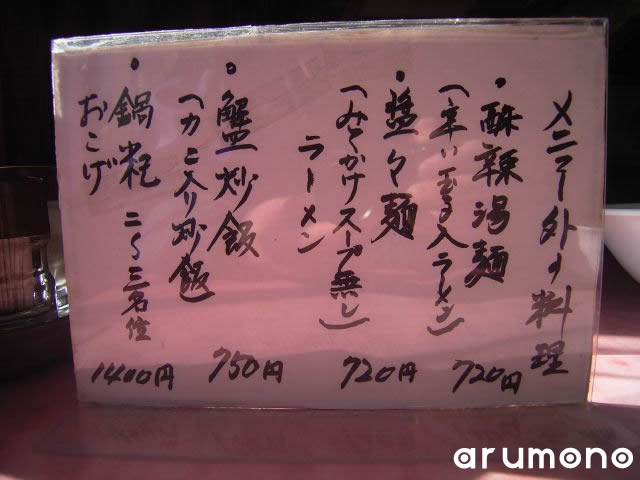 メニュー外の料理
・酥辣湯麺
(辛い玉子入ラーメン)
720円
・盤々麺
(みそかけスープ無し)
ラーメン
720円
・蟹炒飯
(カニ入り炒飯)
750円
・鍋粑 二〜三名位
おこげ
1400円
arumono